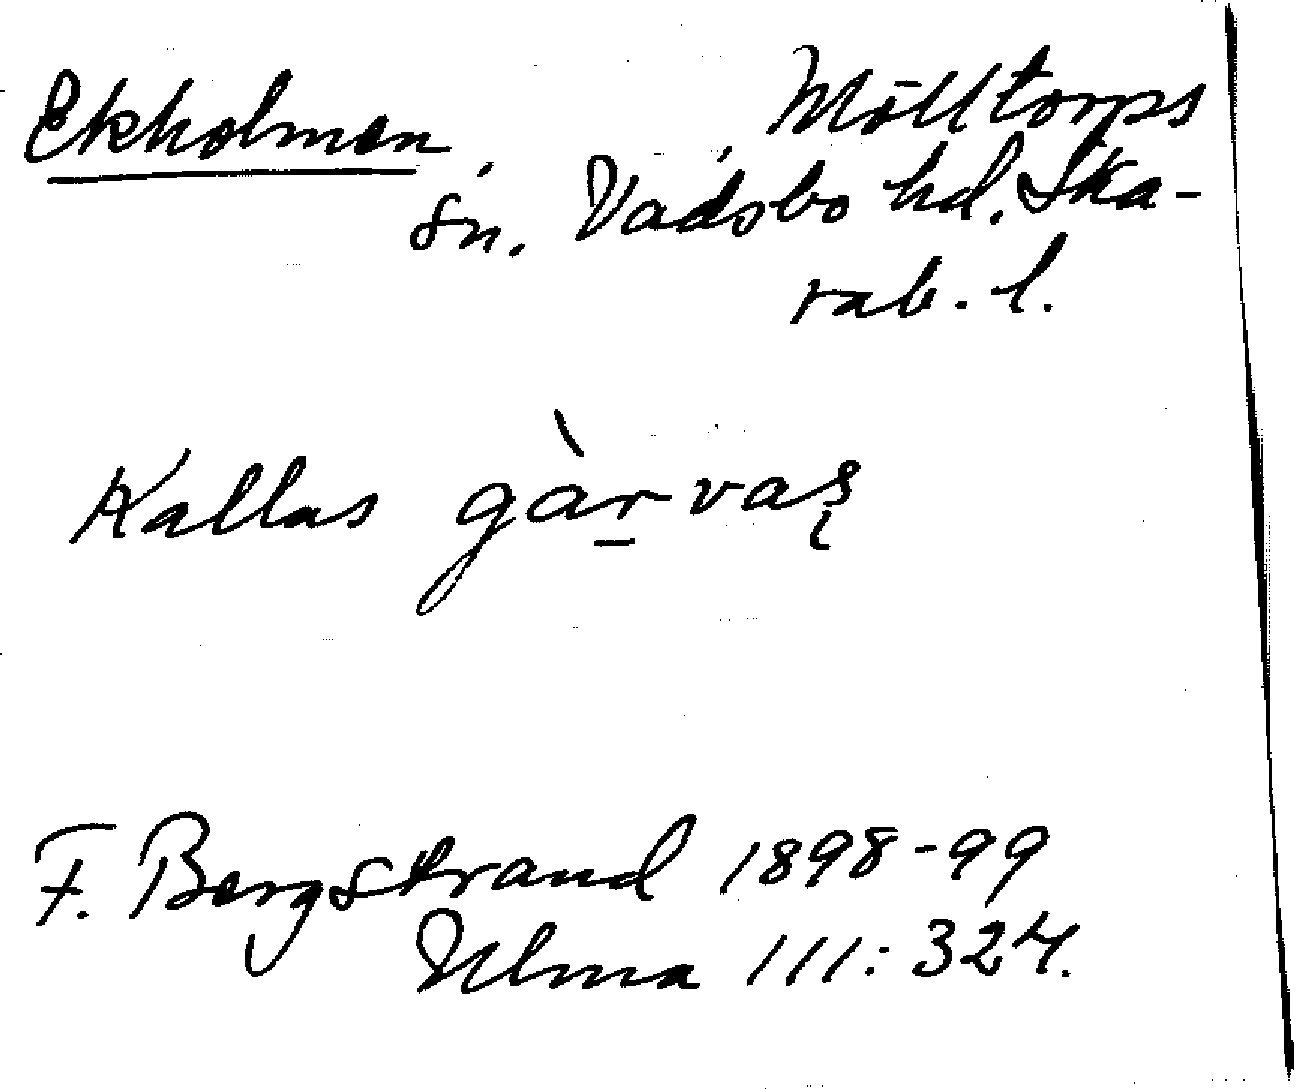 Ekholmen, Mölltorps
sn. Vadsbo hd. Ska-
rab. l.
Kallas gàr̲vas̨
F. Bergstrand 1898-99
Ulma 111:324.